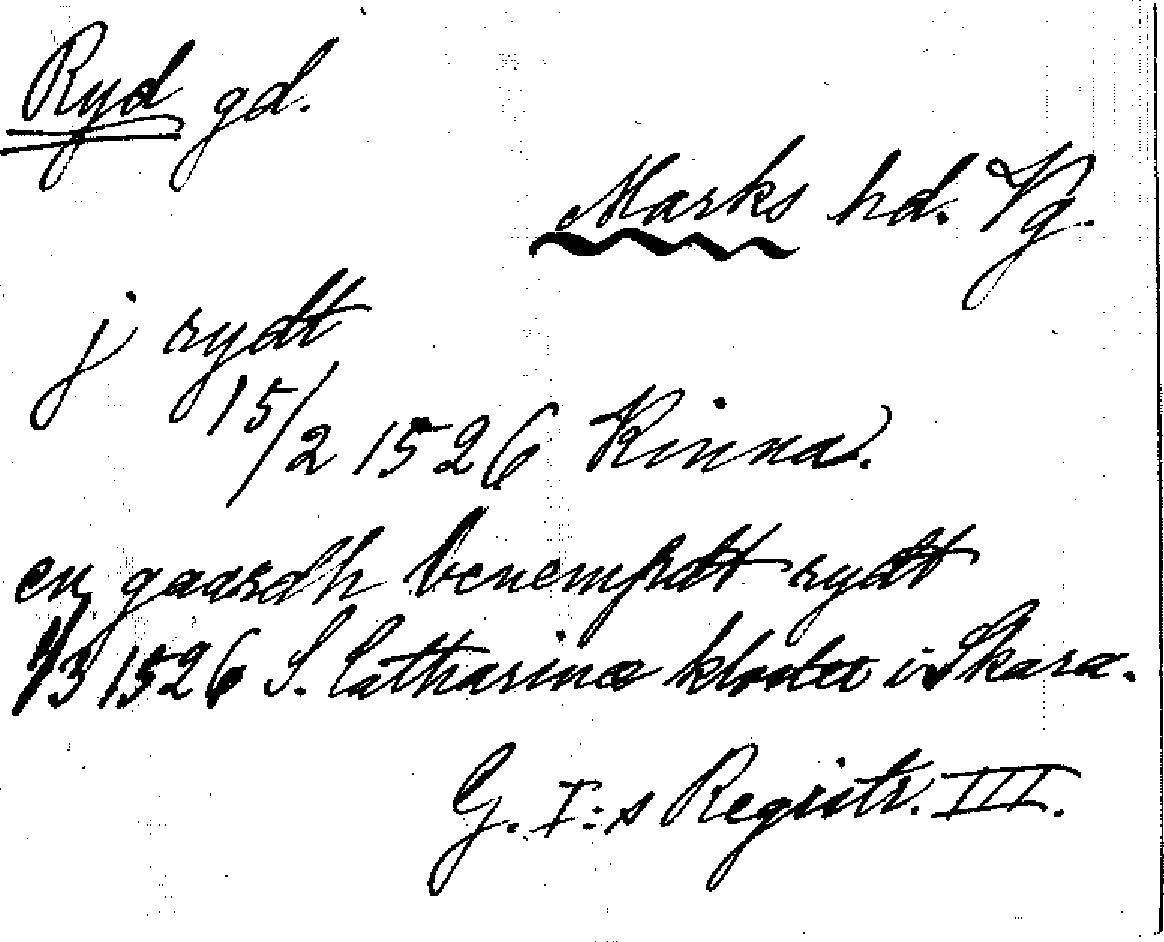 Ryd gd.
Marks hd. Vg.
j rydt
15/2 1526 Kinna.
en gaardh benempdt rydt
1/3 1526 S. Catharinæ kloster i Skara.
G. I:s Registr. III.